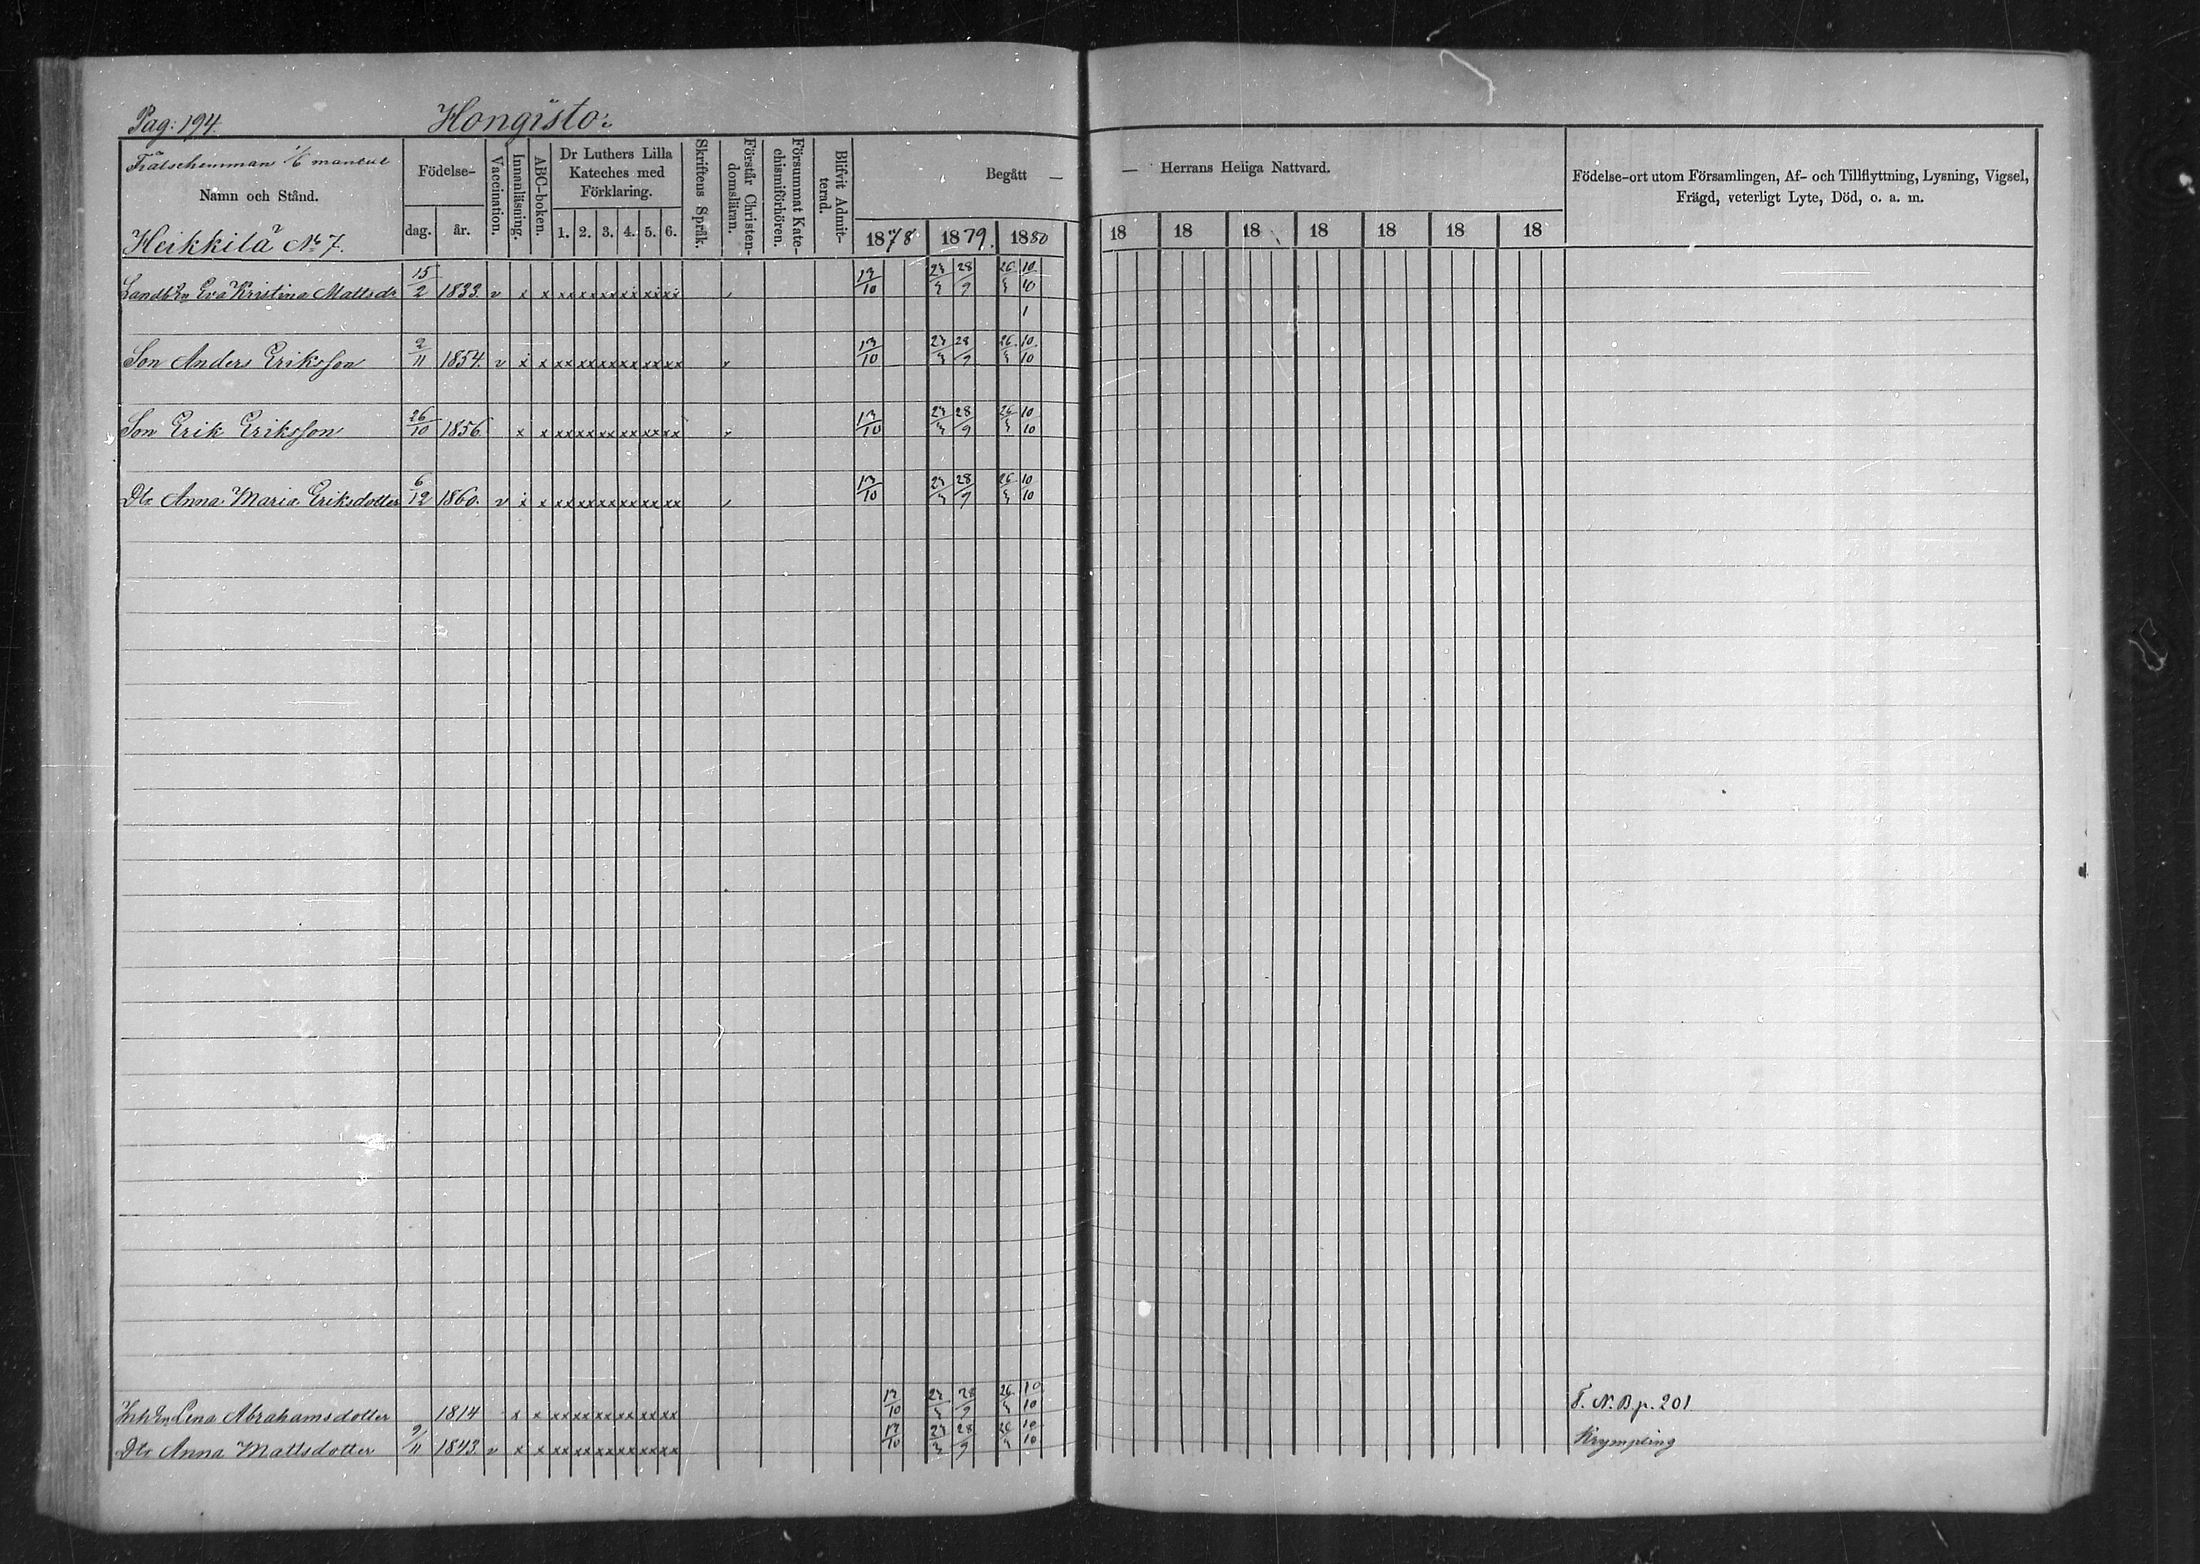 Pag: 194. Hongisto:
Frälsehemman 1/6 mantal
Namn och Stånd.
Heikkilä No 7.
Födelse-
dag. år.
Vaccination.
Innanläsning.
ABC-boken.
Dr Luthers Lilla
Kateches med
Förklaring.
1. 2. 3. 4. 5. 6.
Skriftens Språk.
Förstår Christen-
domsläran.
Försummat Kate-
chismiförhören.
Blifvit Admit-
terad.
Begått — — Herrans Heliga Nattvard.
1878 1879. 1880 18 18 18 18 18 18 18
Födelse-ort utom Församlingen, Af- och Tillflyttning, Lysning, Vigsel,
Frägd, veterligt Lyte, Död, o. a. m.
Eva Kristina Mattsdr 15/2 1833. v x x xx xx xx xx xx xx 13/10 23/3 28/9 26/3 10/10
1
Son Anders Eriksson 2/11 1854. v x x xx xx xx xx xx xx 13/10 23/3 28/9 26/3 10/10
Son Erik Eriksson 26/10 1856. x x xx xx xx xx xx xx 13/10 23/3 28/9 26/3 10/10
Dtr Anna Maria Eriksdotter 6/12 1860. v x x xx xx xx xx xx xx 13/10 23/3 28/9 26/3 10/10
Lena Abrahamsdotter 1814 x x xx xx xx xx xx xx 13/10 23/3 28/9 26/3 10/10 F. N. B p. 201
Dtr Anna Mattsdotter 9/11 1843 v x x xx xx xx xx xx xx 13/10 23/3 28/9 26/3 10/10 Krympling